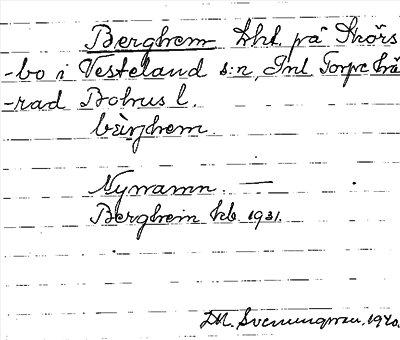 Berghem lht. på Thörs-
-bo i Vesteland s:n, Inl Torpe hä
-rad Bohus l.
bærjhem.
Nynamn. —
Berghem kb. 1931.
M. Svenungsson. 1940.